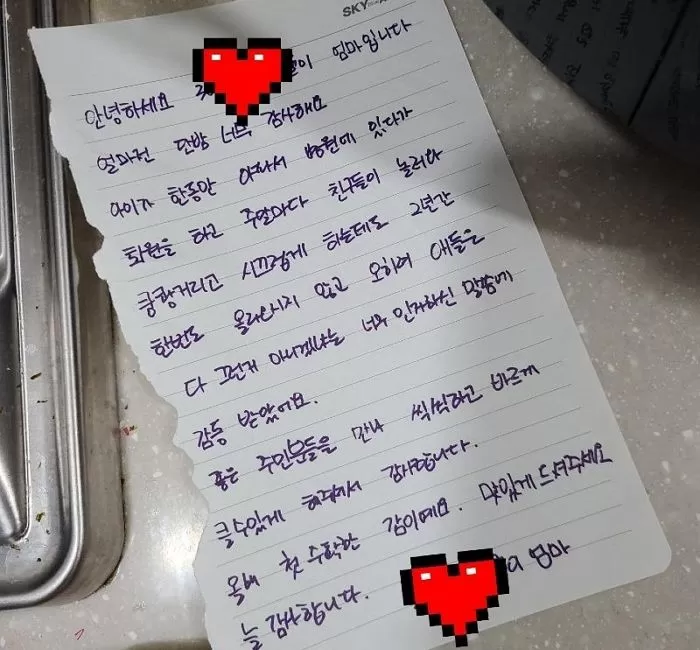 SKY
안녕하세요 이 엄마입니다
얼마전 단밤 너무 감사해요
아이가 한동안 아파서 병원에 있다가
퇴원을 하고 주말마다 친구들이 놀러와
쿵쾅거리고 시끄럽게 하는데도 2년간
한번도 올라오시지 않고 오히려 애들은
다 그런거 아니겠냐는 너무 인자하신 말씀에
감동 받았어요.
좋은 주민분들을 만나 씩씩하고 바르게
클수있게 해주셔서 감사합니다.
올해 첫 수확한 감이에요. 맛있게 드셔주세요
늘 감사합니다. 엄마